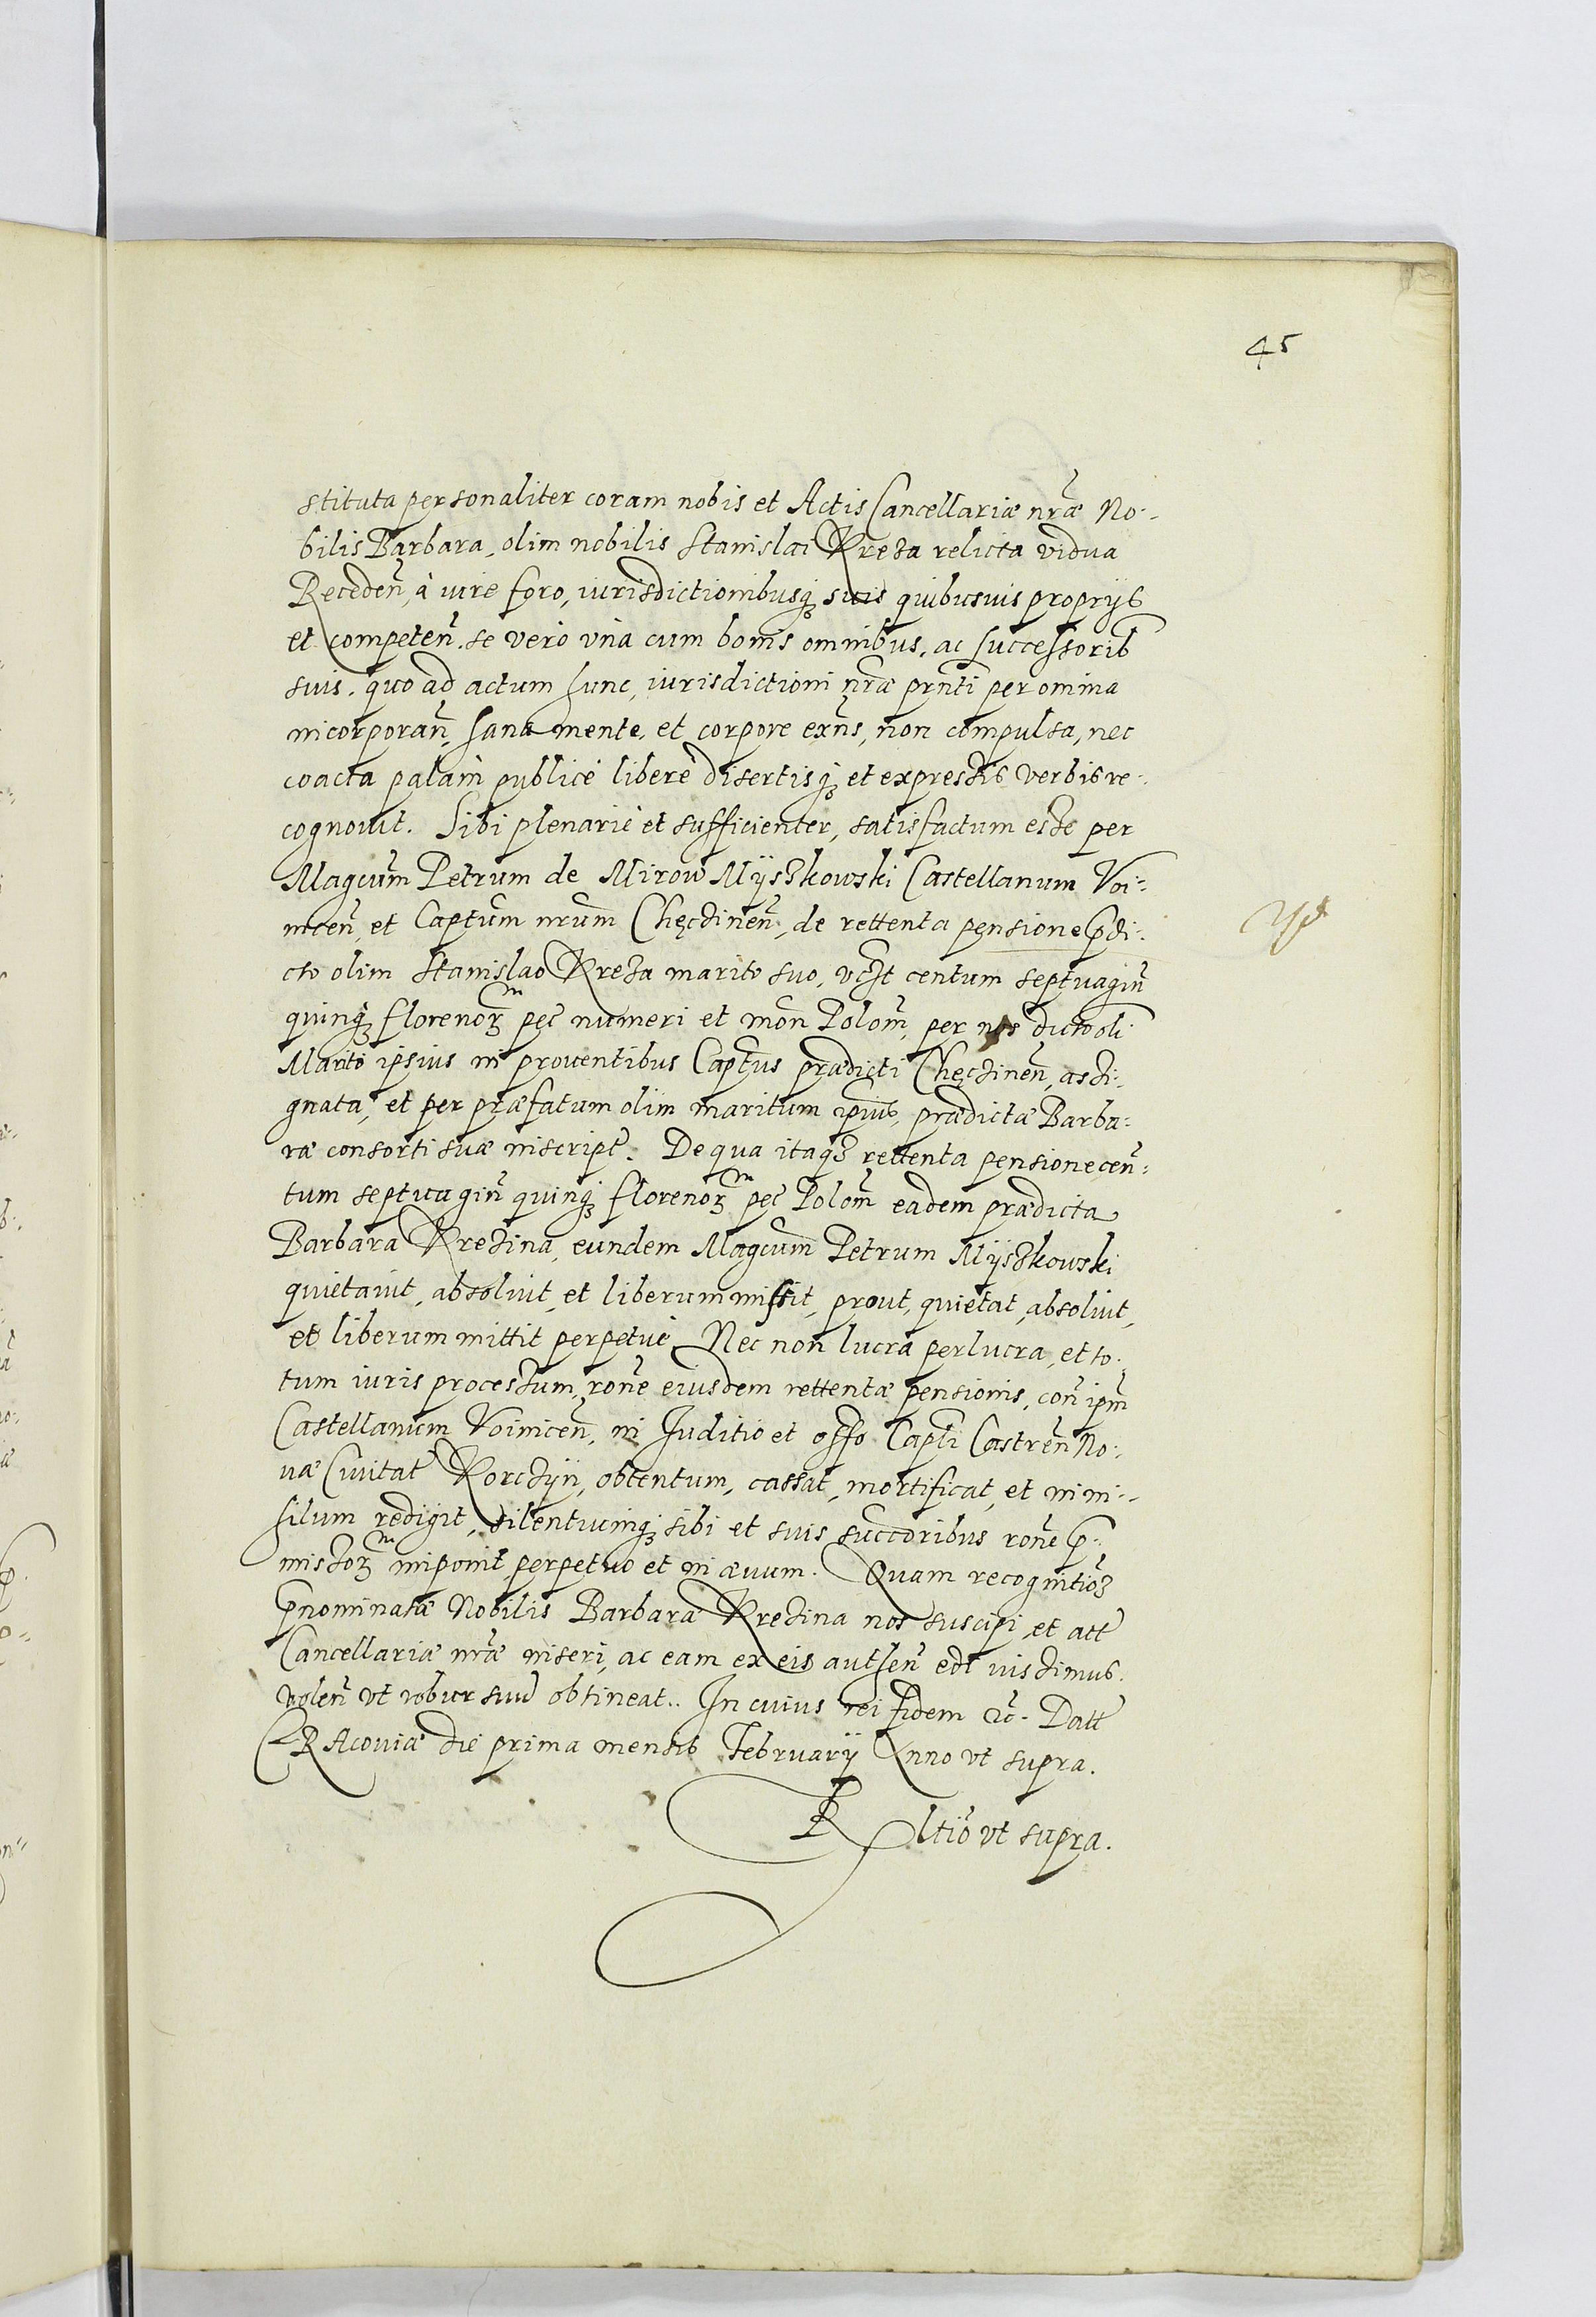 45
stituta personaliter coram nobis et Actis Cancellariæ nr̃æ No-
bilis Barbara, olim nobilis Stanislai Kreza relicta vidua
Receden̄, à iure foro, iurisdictionibusq̨ suis quibusuis proprijs
et competen̄. se vero vnà cum bonis omnibus, ac successorib
suis. quo ad actum hunc, iurisdictioni nr̃æ prn̄ti per omnia
incorporan̄, sana mente, et corpore exn̄s, non compulsa, nec
coacta palàm publicè liberè disertisq̨ et expressis verbis re-
cognouit. Sibi plenariè et sufficienter, satisfactum esse per
Magcum̄ Petrum de Mirow Mÿszkowski Castellanum Voi-
nicen̄, et Captum̄ nrum̄ Chęczinen̄, de rettenta pensione p̄di-
cto olim Stanislao Kreza marito suo, vczt centum septuagin̄
quinq̨ florenorꝫ pec̃ numeri et mon̄ Polon̄, per nos dicto oli
Marito ipsius in prouentibus Captus̄ prædicti Chęczinen̄, assi-
gnata, et per præfatum olim maritum ipius̄, prædictæ Barba-
ræ consorti suæ inscript̃. De qua itaqꝫ rettenta pensione cen̄-
tum septuagin̄ quinq̨ florenorꝫ pec̃ Polon̄ eadem prædicta
Barbara Krezina, eundem Magcum̄ Petrum Mÿszkowski
quietauit, absoluit, et liberum missit, prout, quietat, absoluit,
et liberum mittit perpetuè. Nec non lucra perlucra, et to-
tum iuris processum, ron̄e eiusdem rettentæ pensionis, con̄ ipm̄
Castellanum Voinicen̄, in Juditio et offo Capti̅ Castren̄ No-
uæ Ciuitat̃ Korczÿn, obtentum, cassat, mortificat, et in ni-
hilum redigit, silentiumq̨ sibi et suis succoribus ron̄e p̄-
missorꝫ imponit perpetuo et in æuum. Quam recognitio͂ꝫ
p̄nominatæ Nobilis Barbaræ Krezina nos suscipi, et att̃
Cancellariæ nr̃æ inseri, ac eam ex eis authen̄ edi iussimus.
volen̄ vt robur suu̅ obtineat.. In cuius rei fidem &c̃. Datt̃
CRAcouiæ die prima mensis Februarÿ Anno vt supra.
Rltio̅ vt supra.